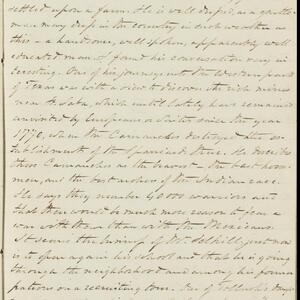 settled upon a farm. He is well dressed, as a gentle-
man may dress in the country in such weather as
this – a handsome, well spoken, apparently well
educated man. I found his conversation very in-
teresting. One of his journeys into the Western part
of Texas was with a view to discover the rich mines
near which until lately have remained
unvisited by Europeans or whites since the year
1770, when the Camanches destroyed the es-
tablishment of the Spaniards there. He describes
these Camanches as the bravest – the best horse-
men, and the best archers of the Indian race.
He says they number 40000 warriors and
that there would be much more reason to fear a
war with them than with the Mexicans.
It seems the business of Mr. just now
is to open again his school and that he is going
through the neighborhood and among his former
patrons on a recruiting tour. One of